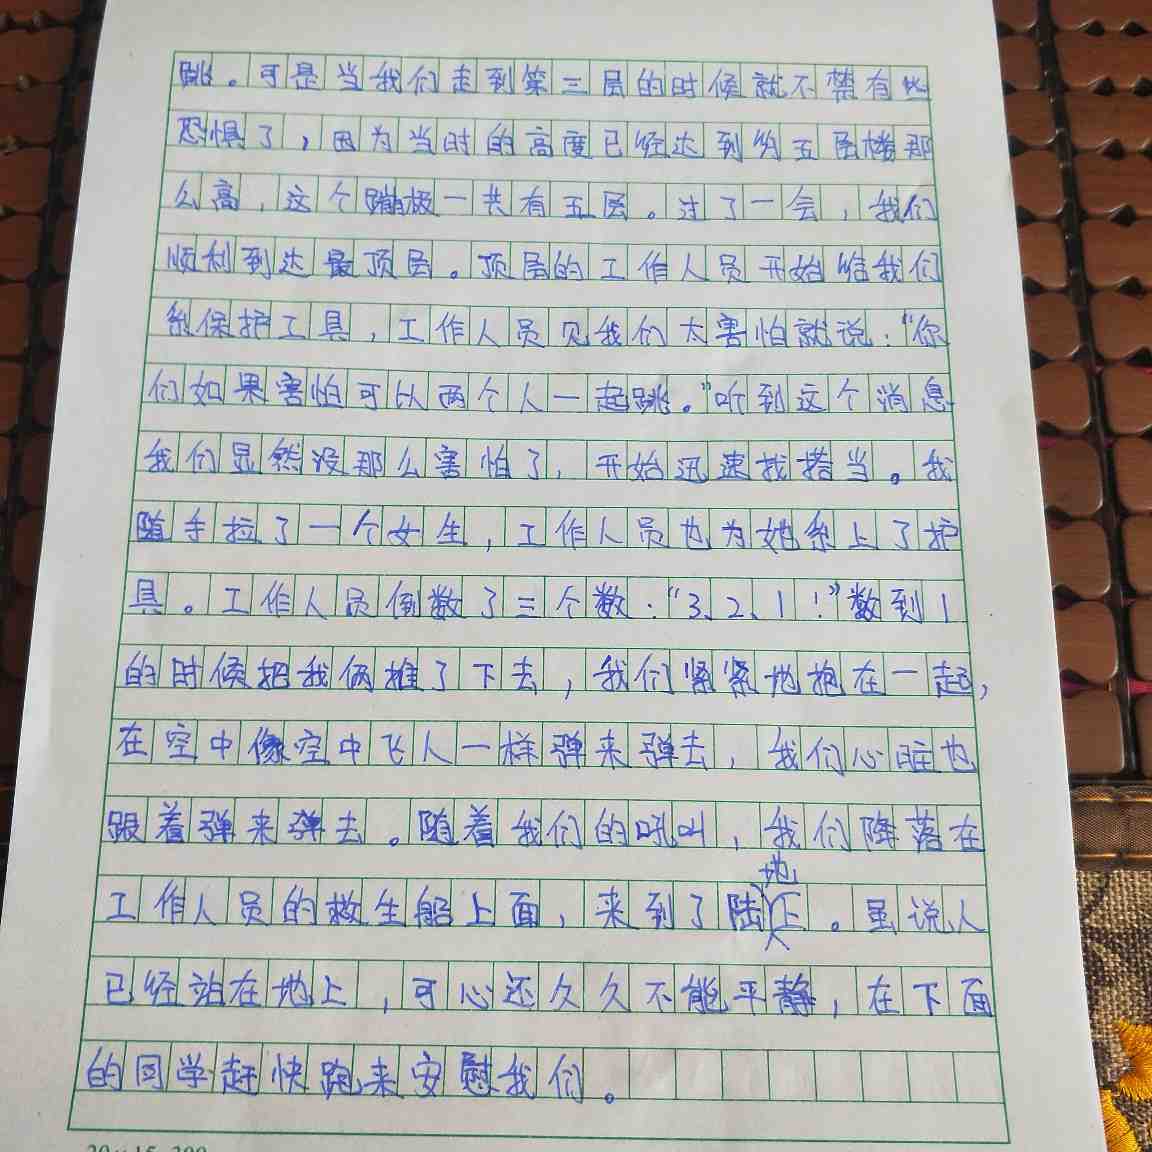 跳。可是当我们走到第三层的时候就不禁有些
恐惧了，因为当时的高度已经达到约五层楼那
么高，这个蹦极一共有五层。过了一会，我们
顺利到达最顶层。顶层的工作人员开始给我们
系保护工具，工作人员见我们太害怕就说：“你
们如果害怕可以两个人一起跳。”听到这个消息
我们显然没那么害怕了，开始迅速找搭当。我
随手拉了一个女生，工作人员也为她系上了护
具。工作人员倒数了三个数：“3、2、1！”数到1
的时候把我俩推了下去，我们紧紧地抱在一起，
在空中像空中飞人一样弹来弹去，我们心脏也
跟着弹来弹去。随着我们的吼叫，我们降落在
工作人员的救生船上面，来到了陆地上。虽说人
已经站在地上，可心还久久不能平静，在下面
的同学赶快跑来安慰我们。